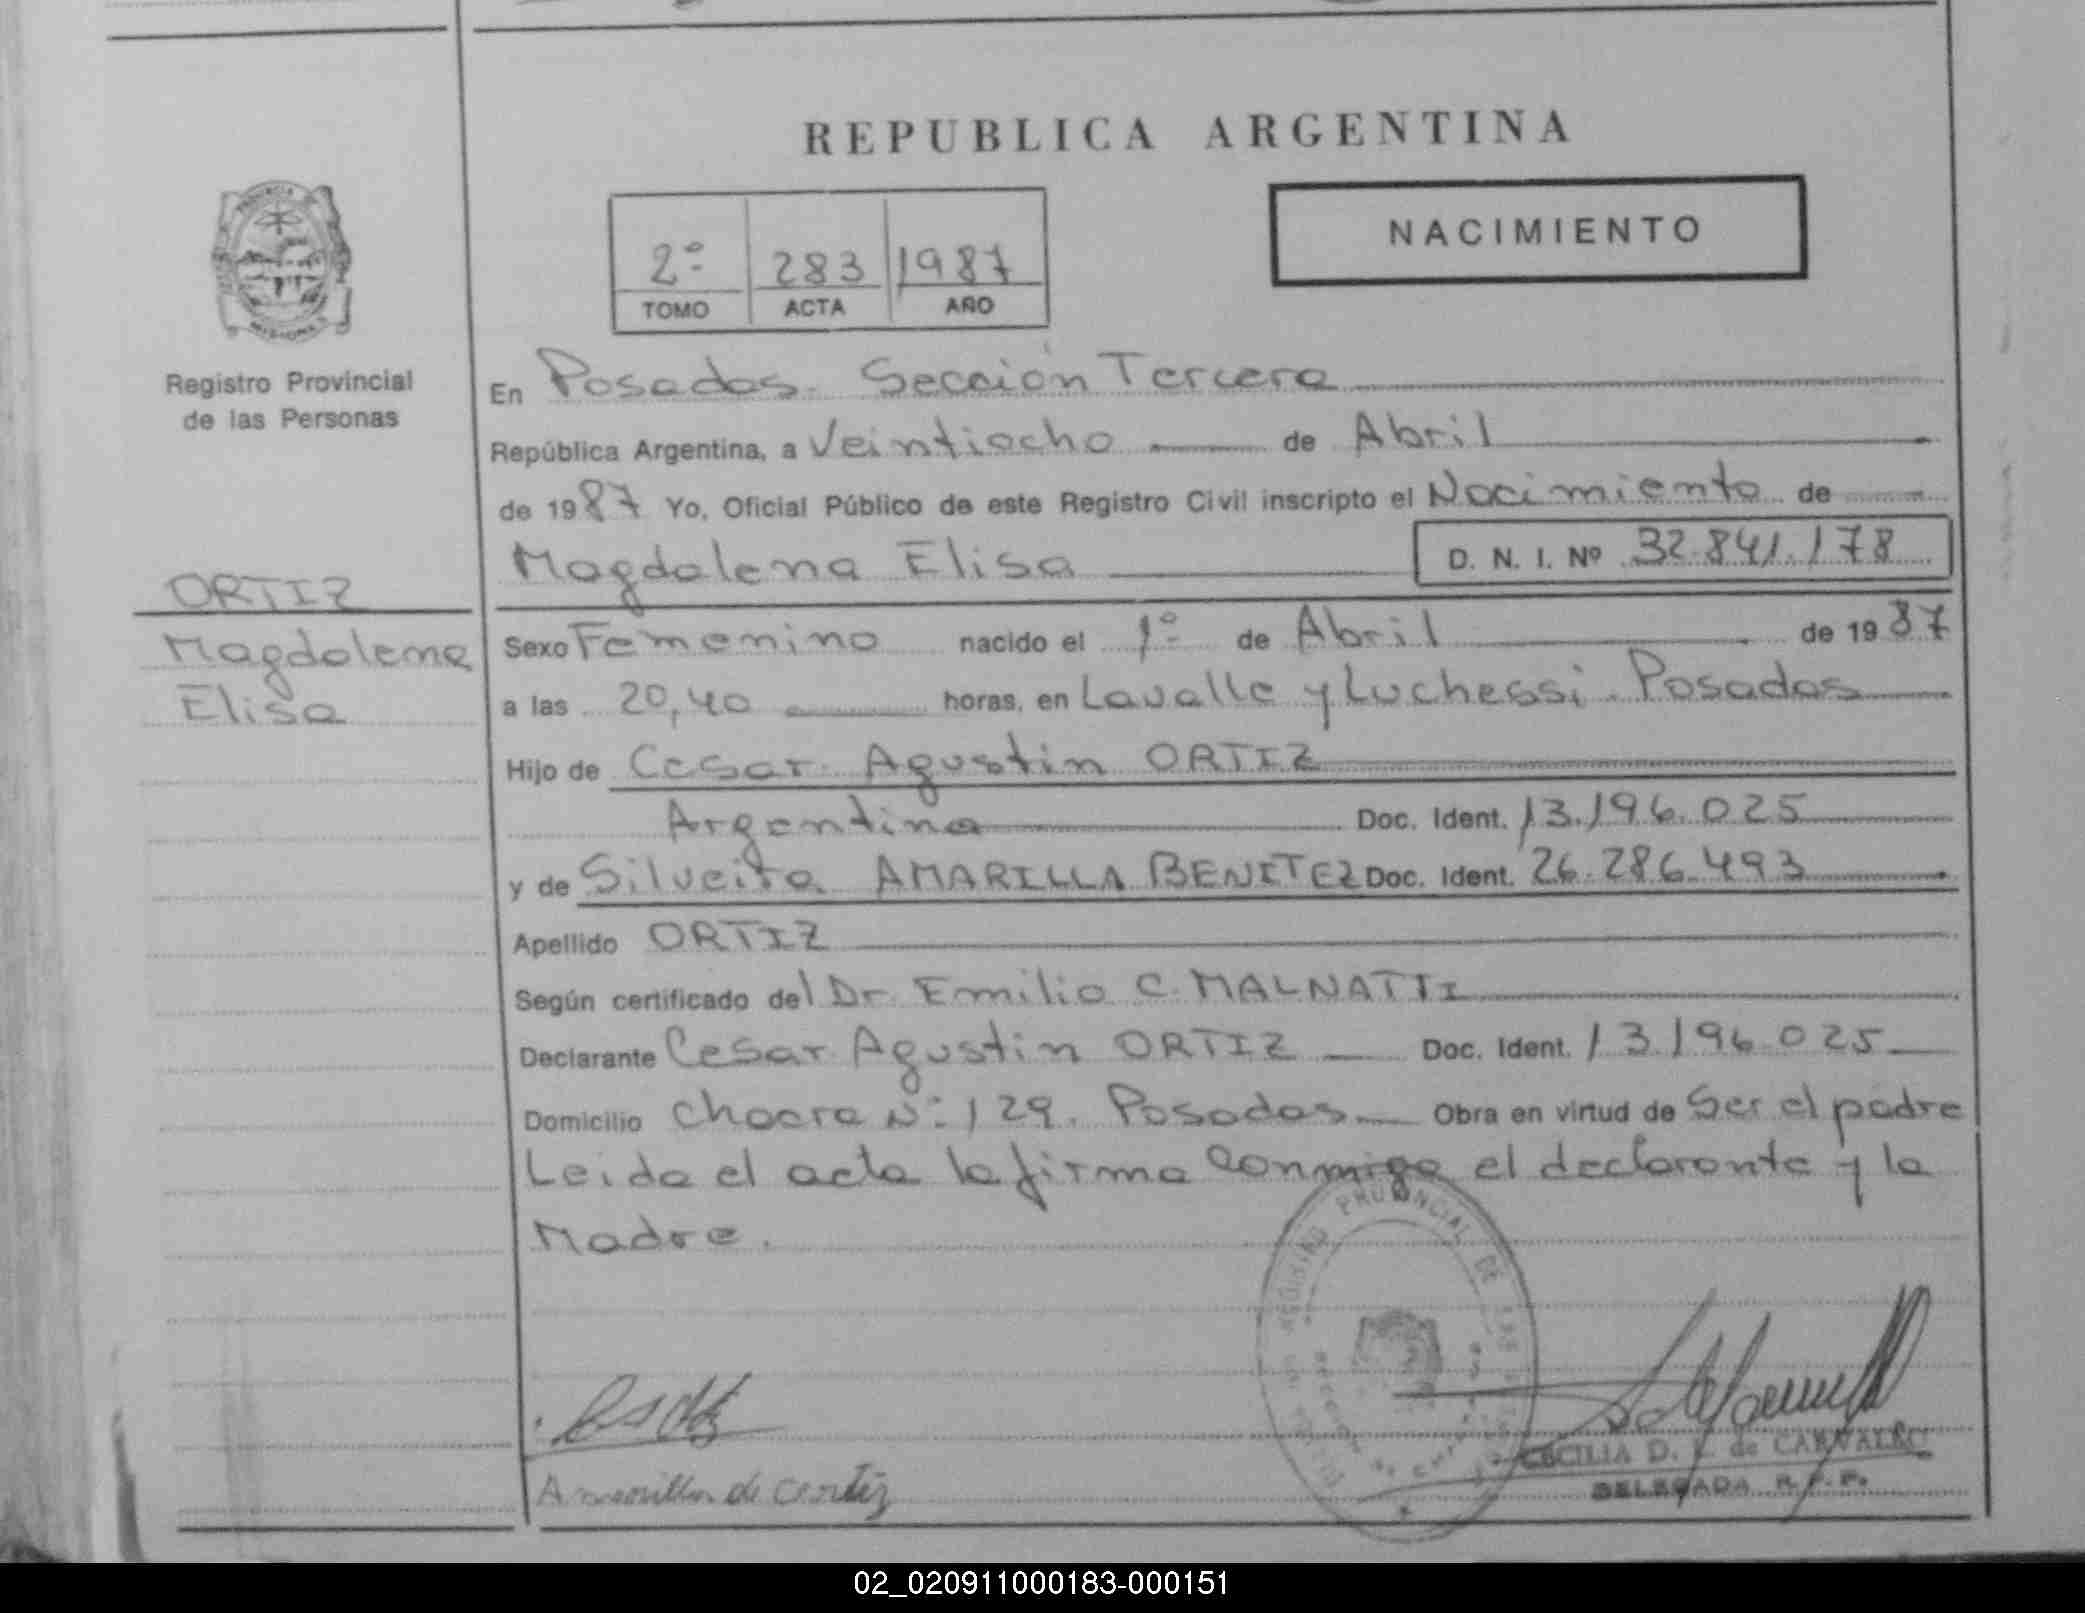 REPUBLICA ARGENTINA
NACIMIENTO
2º 283 1987
TOMO ACTA AÑO
Registro Provincial
de las Personas
ORTIZ
Magdalena
Elisa
En Posadas. Sección Tercera
República Argentina, a Veintiocho de Abril
de 1987 Yo, Oficial Público de este Registro Civil inscripto el Nacimiento de
Magdalena Elisa D. N. I. Nº 32.841.178
Sexo Femenino nacido el 1º de Abril de 1987
a las 20,40 horas, en Lavalle y Luchessi. Posadas
Hijo de Cesar Agustin ORTIZ
Argentino Doc. Ident. 13.196.025
y de Silveita AMARILLA BENITEZ Doc. Ident. 26.286.493
Apellido ORTIZ
Según certificado del Dr. Emilio C. MALNATTI
Declarante Cesar Agustin ORTIZ Doc. Ident. 13.196.025
Domicilio Chacra Nº 129. Posadas Obra en virtud de Ser el padre
Leida el acta la firma conmigo el declarante y la
Madre.
PROVINCIAL DE LAS
CECILIA D. de CARVALLO
DELEGADA R.P.P.
Amarilla de Ortiz
02_020911000183-000151